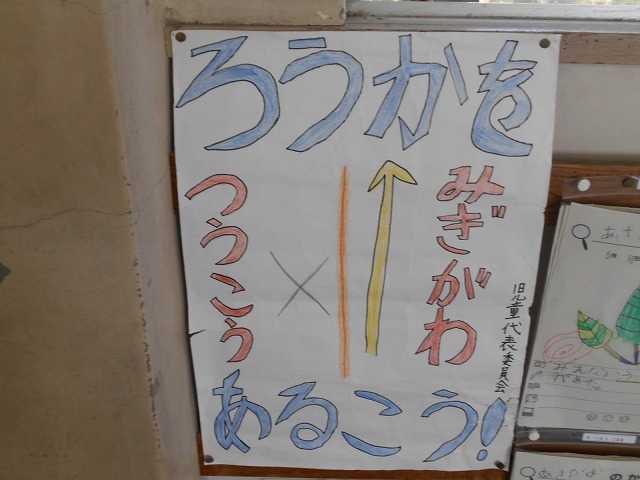 ろうかを
みぎがわ
つうこう
あるこう!
旧児童代表委員会
あさが
みえないう